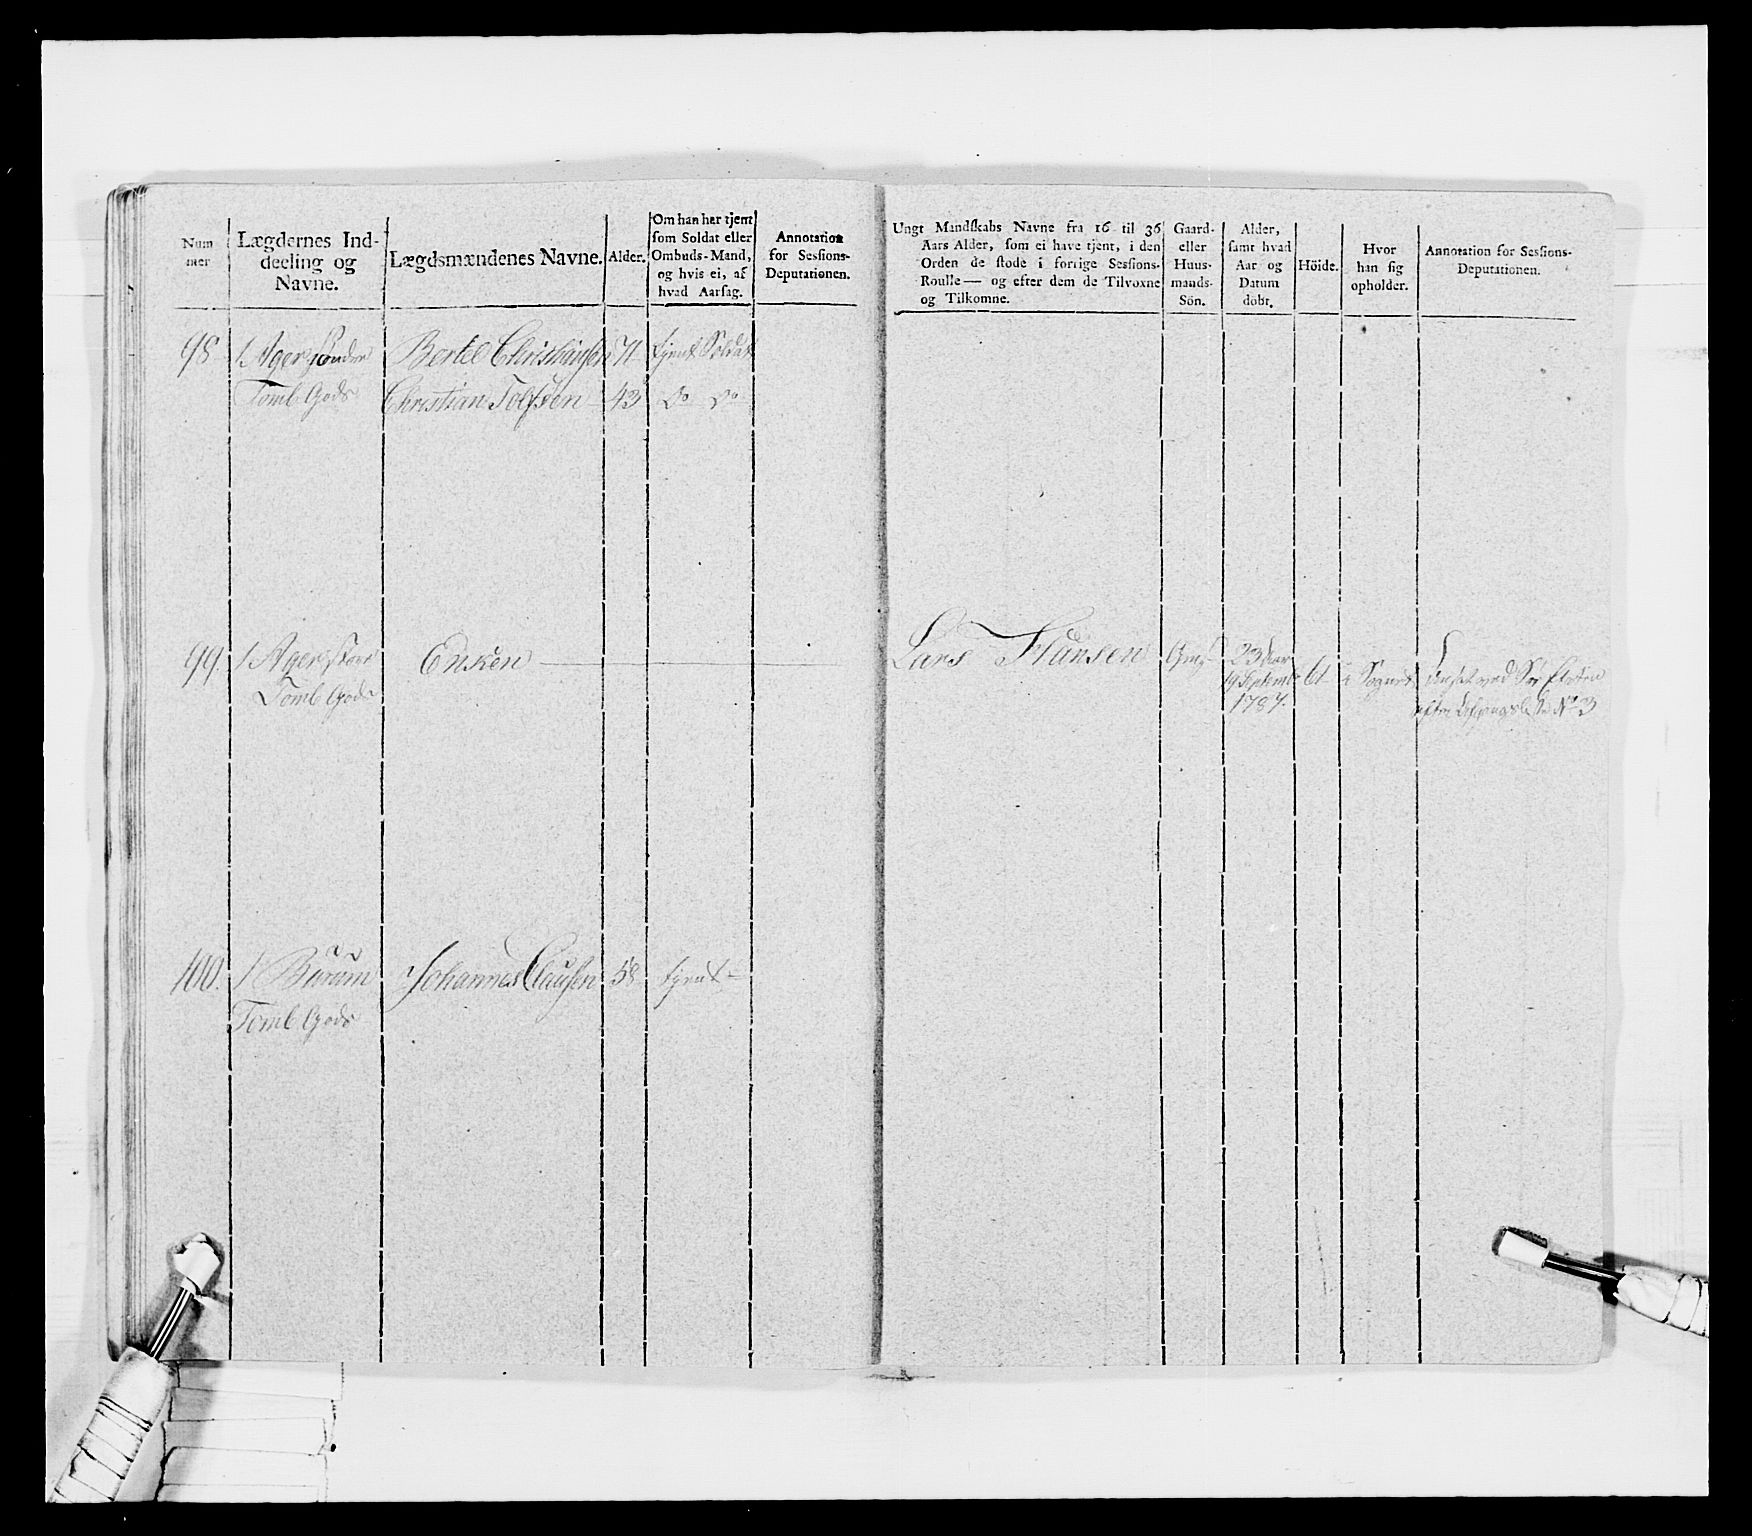 Num
mer
Lægdernes Ind-
deeling og
Navne.
Lægdsmændenes Navne.
Alder.
Om han her tjent
som Soldat eller
Ombuds-Mand,
og hvis ei, af
hvad Aarsag.
Annotation
for Sessions-
Deputationen.
98
1 Ager søndre
Bertel Christiansen
71
tjent Soldat
Tomb Gods
Christian Tolfsen
43
Do Do
99.
1 Ager store
Enken
Tomb Gods
100.
1 Burum
Johannes Clausen
58
tjent
Tomb Gods
Ungt Mandskabs Navne fra 16 til 36
Aars Alder, som ei have tjent, i den
Orden de stode i forrige Sessions-
Roulle — og efter dem de Tilvoxne
og Tilkomne.
Gaard-
eller
Huus-
mands-
Sön.
Alder,
samt hvad
Aar og
Datum
döbt.
Höide.
Hvor
han sig
opholder.
Annotation for Sessions-
Deputationen.
Lars Hansen
Gmds
23 Aar
19 Septembr
1787.
61
i Sognet
ved Søe Etaten
efter Afgangsliste No 3